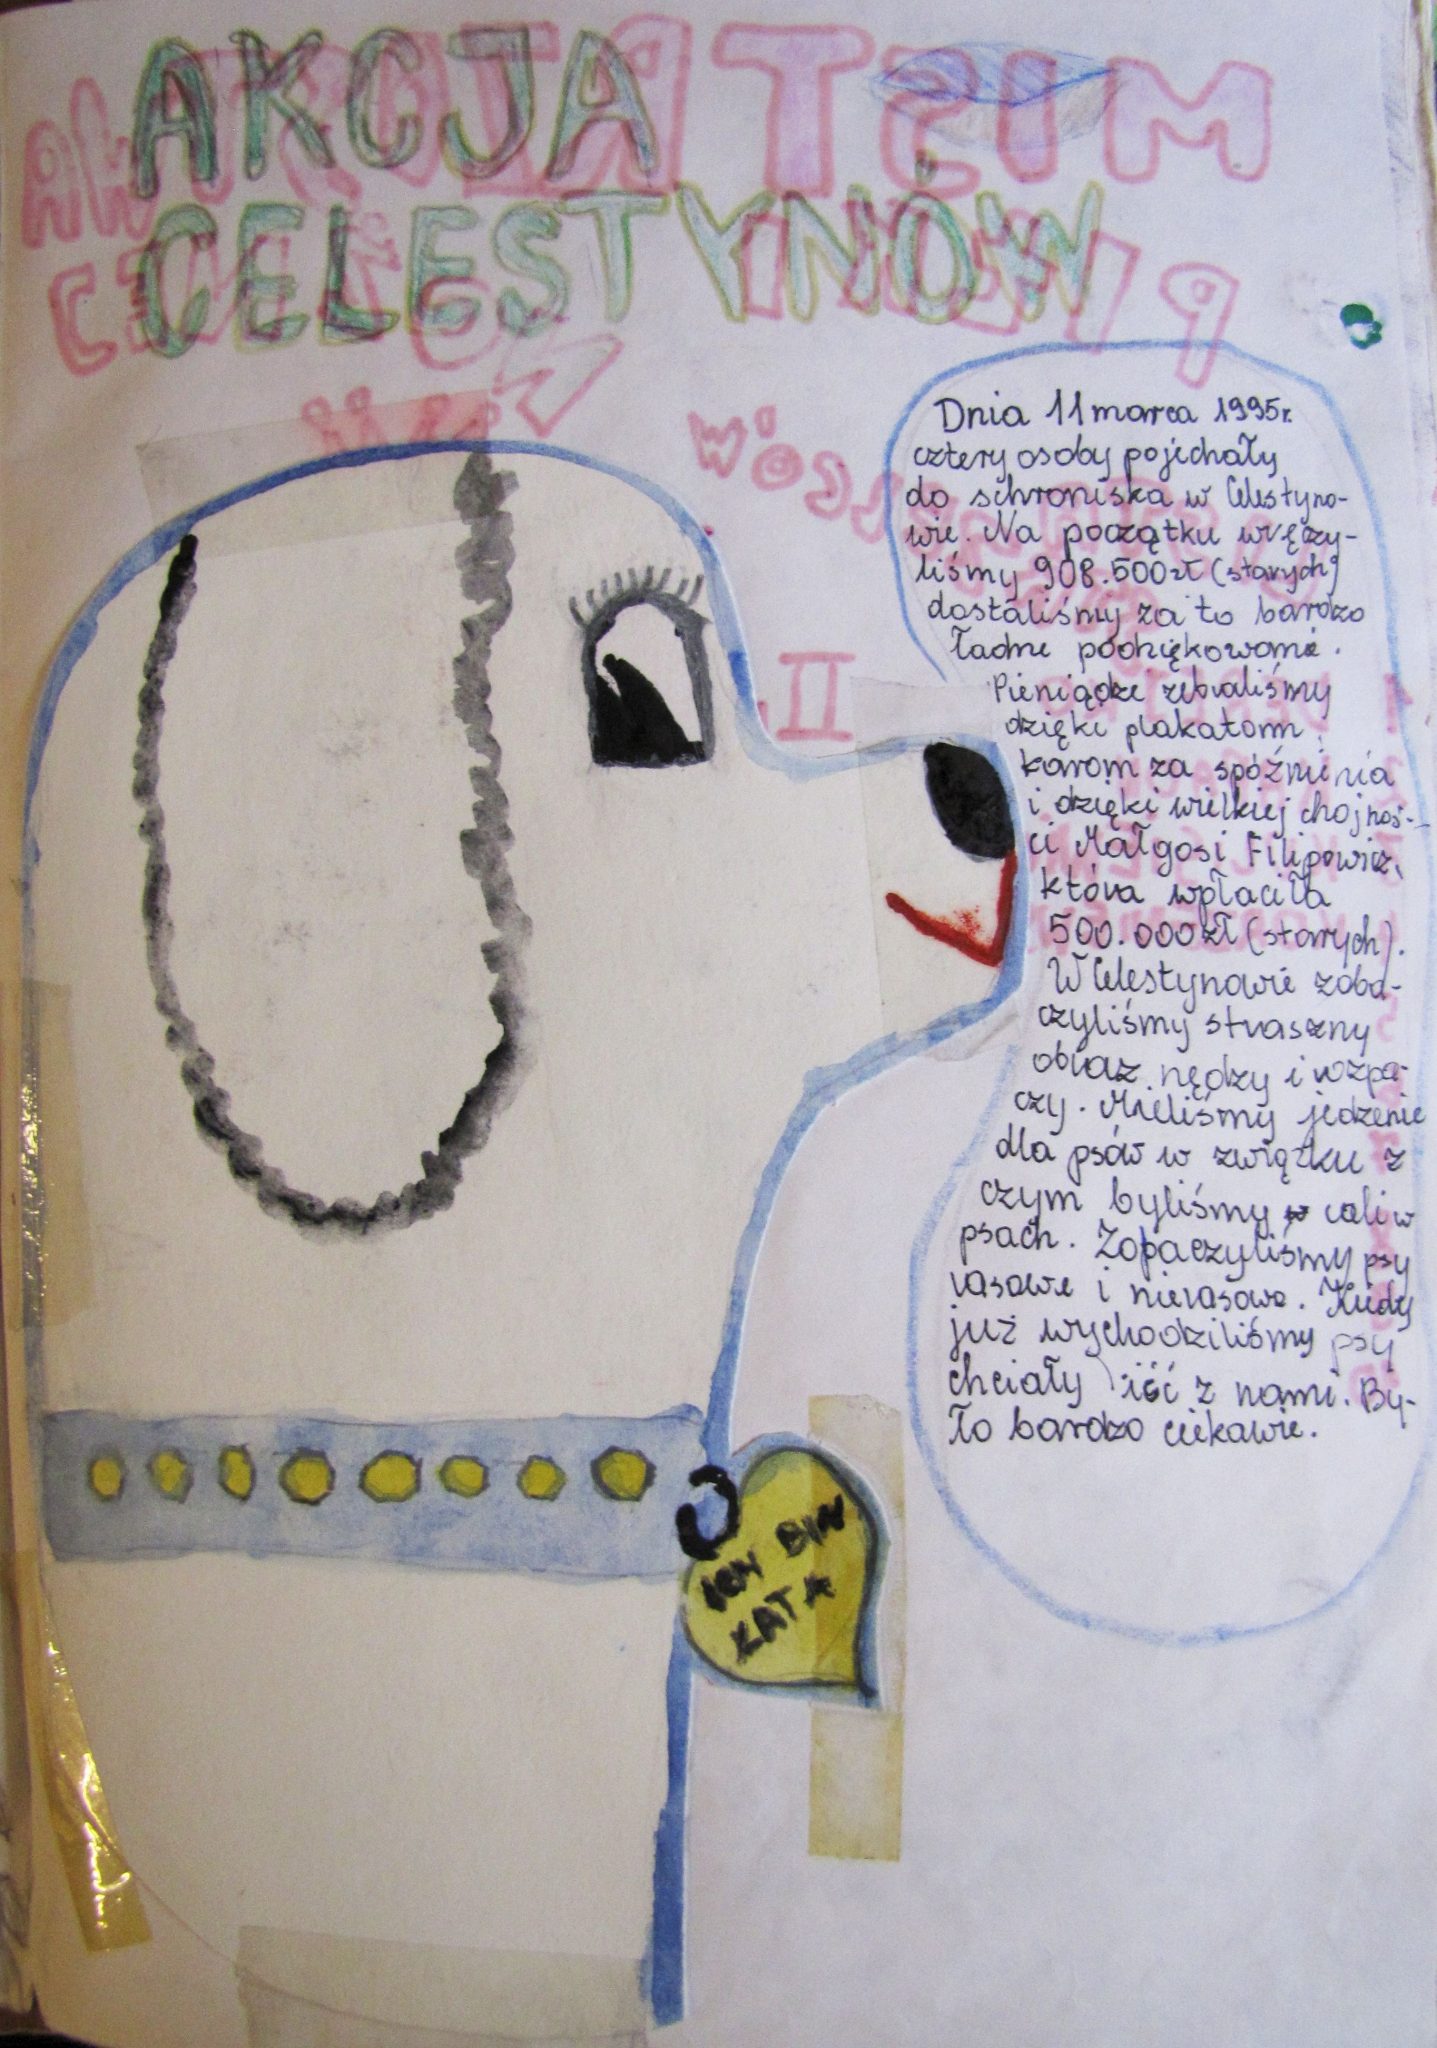 AKCJA
CELESTYNÓW
Dnia 11 marca 1995r.
cztery osoby pojechały
do schroniska w Celestyno-
wie. Na początku wręczy-
liśmy 908.500zł (starych)
dostaliśmy za to bardzo
ładne podziękowanie.
Pieniądze zebraliśmy
dzięki plakatom,
karom za spóźnienia
i dzięki wielkiej chojnoś-
ci Małgosi Filipowicz,
która wpłaciła
500.000zł (starych).
W Celestynowie zoba-
czyliśmy straszny
obraz nędzy i rozpa-
czy. Mieliśmy jedzenie
dla psów w związku z
czym byliśmy cali w
psach. Zobaczyliśmy psy
rasowe i nierasowe. Kiedy
już wychodziliśmy psy
chciały iść z nami. By-
ło bardzo ciekawie.
ICH BIN
KATA